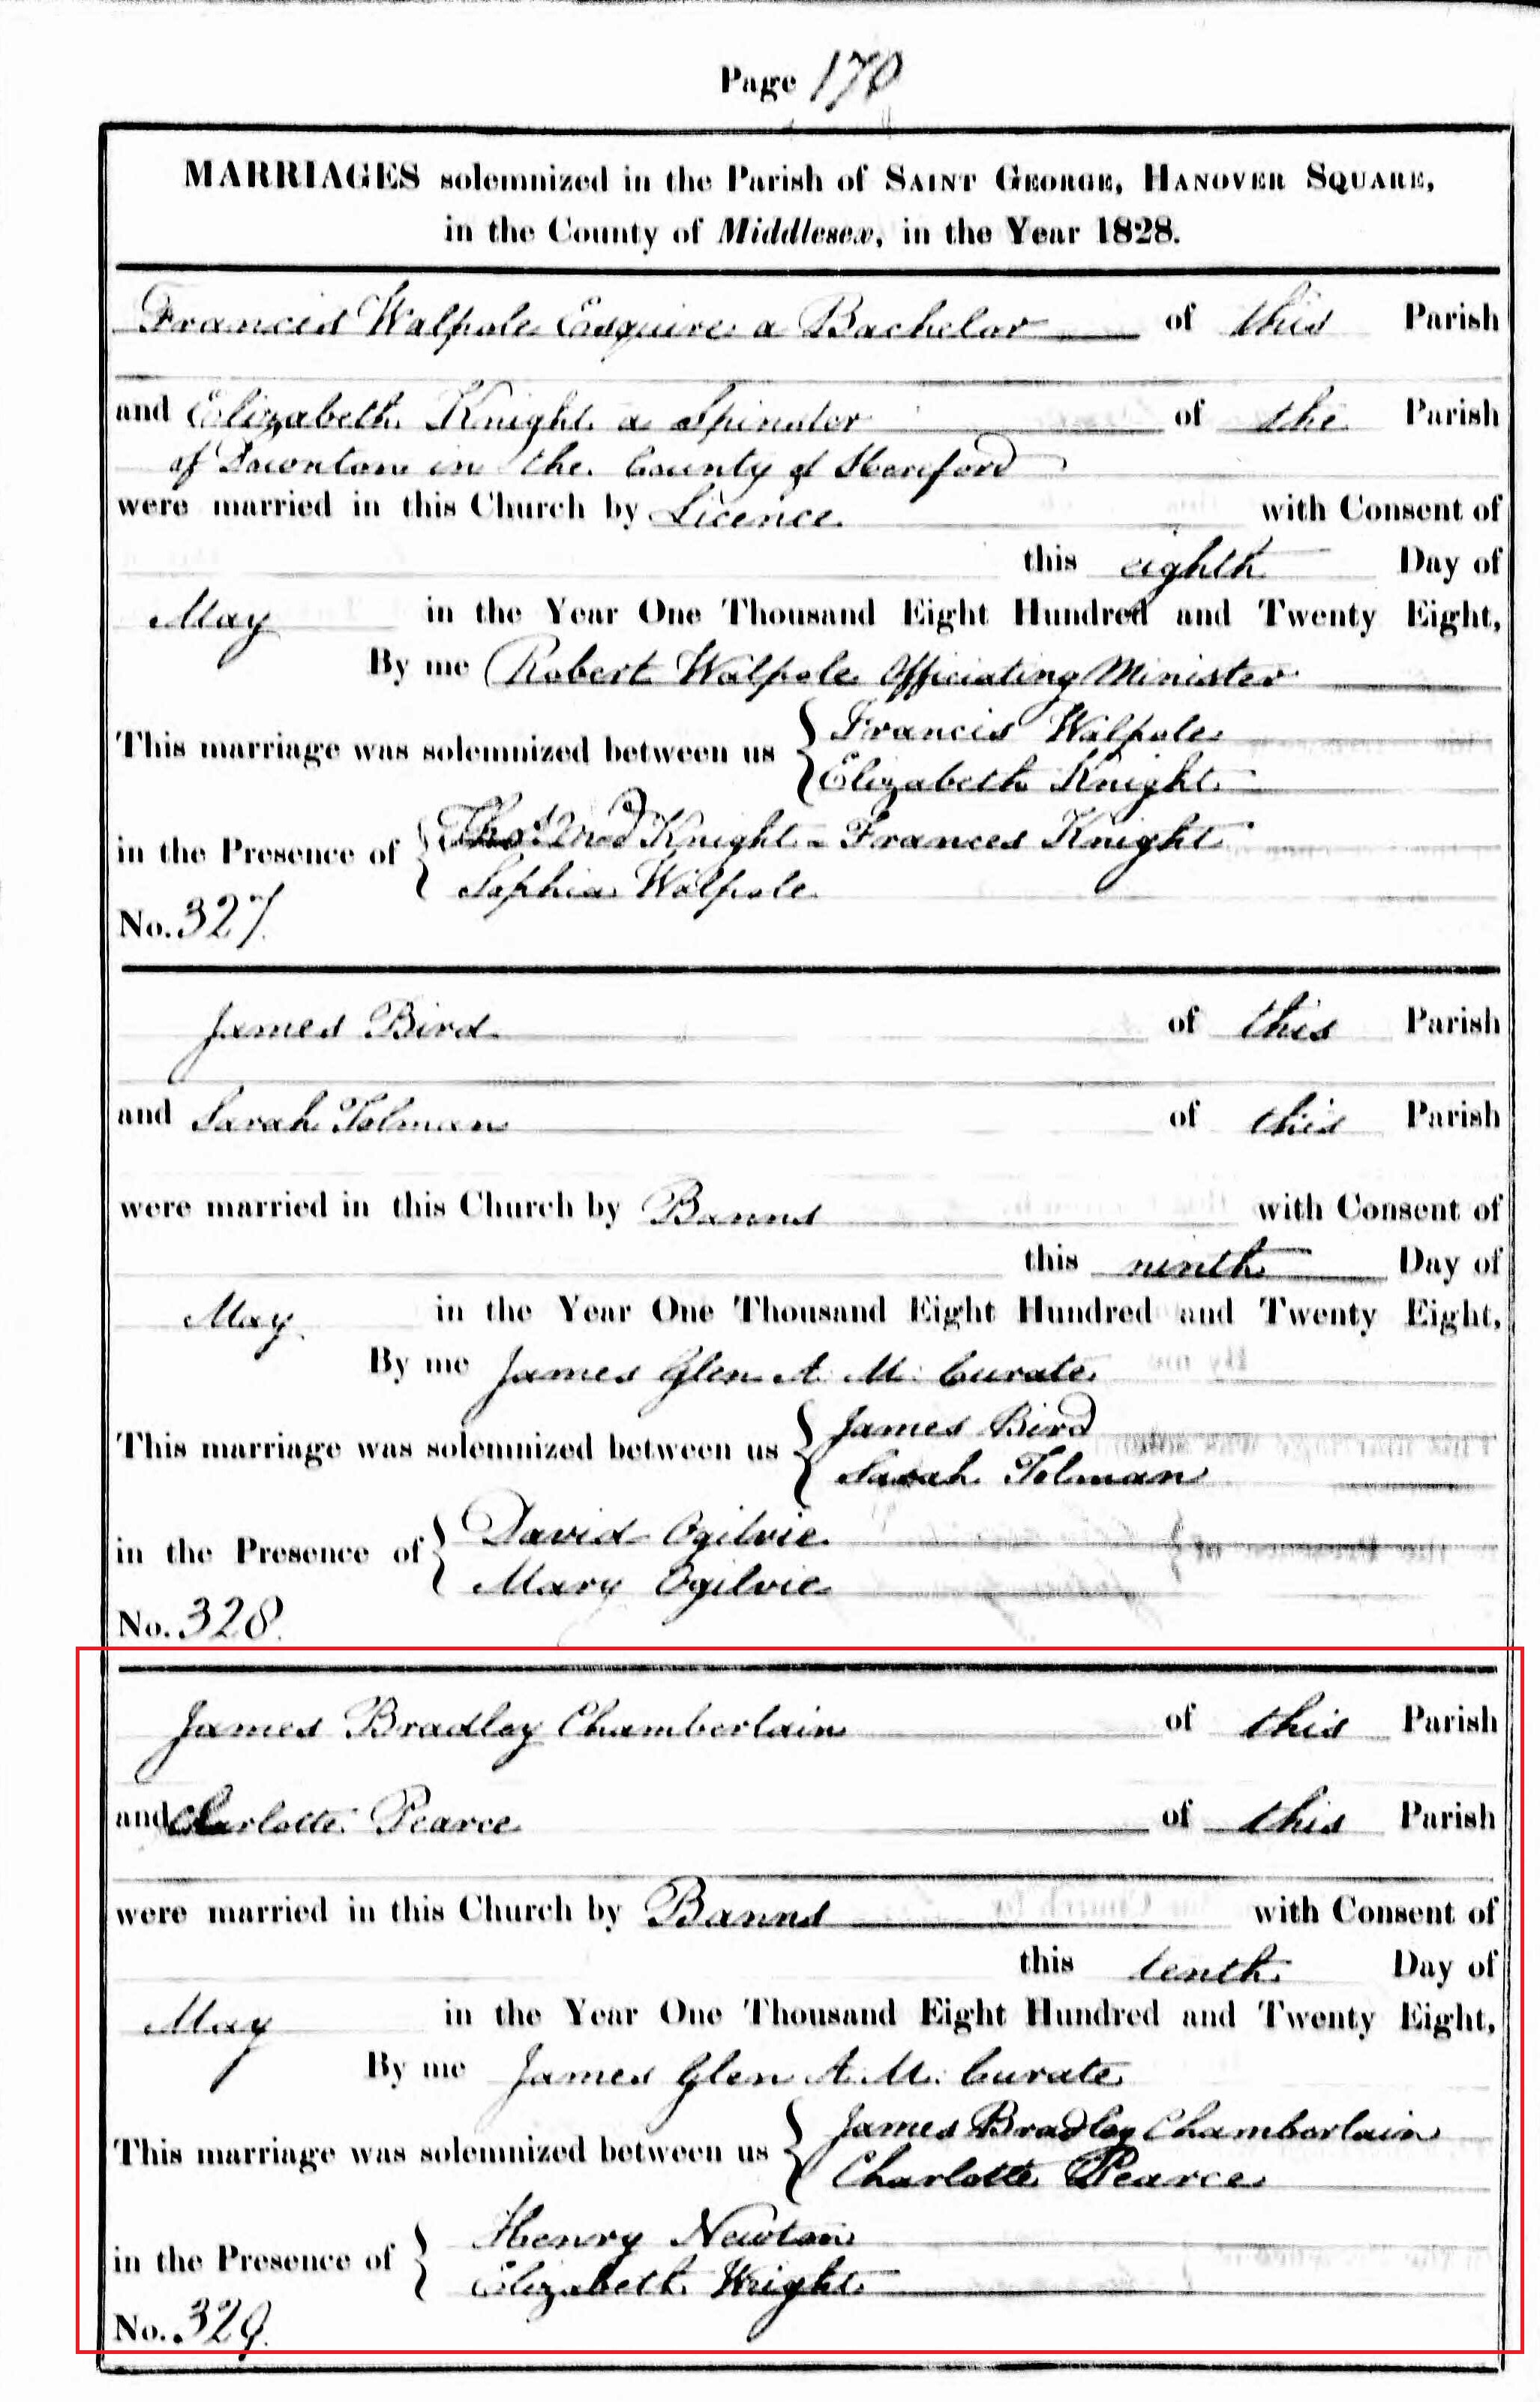 Page 170
MARRIAGES solemnized in the Parish of SAINT GEORGE, HANOVER SQUARE,
in the County of Middlesex, in the Year 1828.
Francis Walpole Esquire a Bachelor of this Parish
and Elizabeth Knight a Spinster of the Parish
of Downton in the County of Hereford
were married in this Church by Licence with Consent of
this eighth Day of
May in the Year One Thousand Eight Hundred and Twenty Eight,
By me Robert Walpole Officiating Minister
This marriage was solemnized between us { Francis Walpole
Elizabeth Knight
in the Presence of { Thos And Knight - Frances Knight
Sophia Walpole
No. 327.
James Bird of this Parish
and Sarah Tolman of this Parish
were married in this Church by Banns with Consent of
this ninth Day of
May in the Year One Thousand Eight Hundred and Twenty Eight,
By me James Glen A. M. Curate
This marriage was solemnized between us { James Bird
Sarah Tolman
in the Presence of { David Ogilvie
Mary Ogilvie
No. 328.
James Bradley Chamberlain of this Parish
and Charlotte Pearce of this Parish
were married in this Church by Banns with Consent of
this tenth Day of
May in the Year One Thousand Eight Hundred and Twenty Eight,
By me James Glen A. M. Curate
This marriage was solemnized between us { James Bradley Chamberlain
Charlotte Pearce
in the Presence of { Henry Newton
Elizabeth Wright
No. 329.